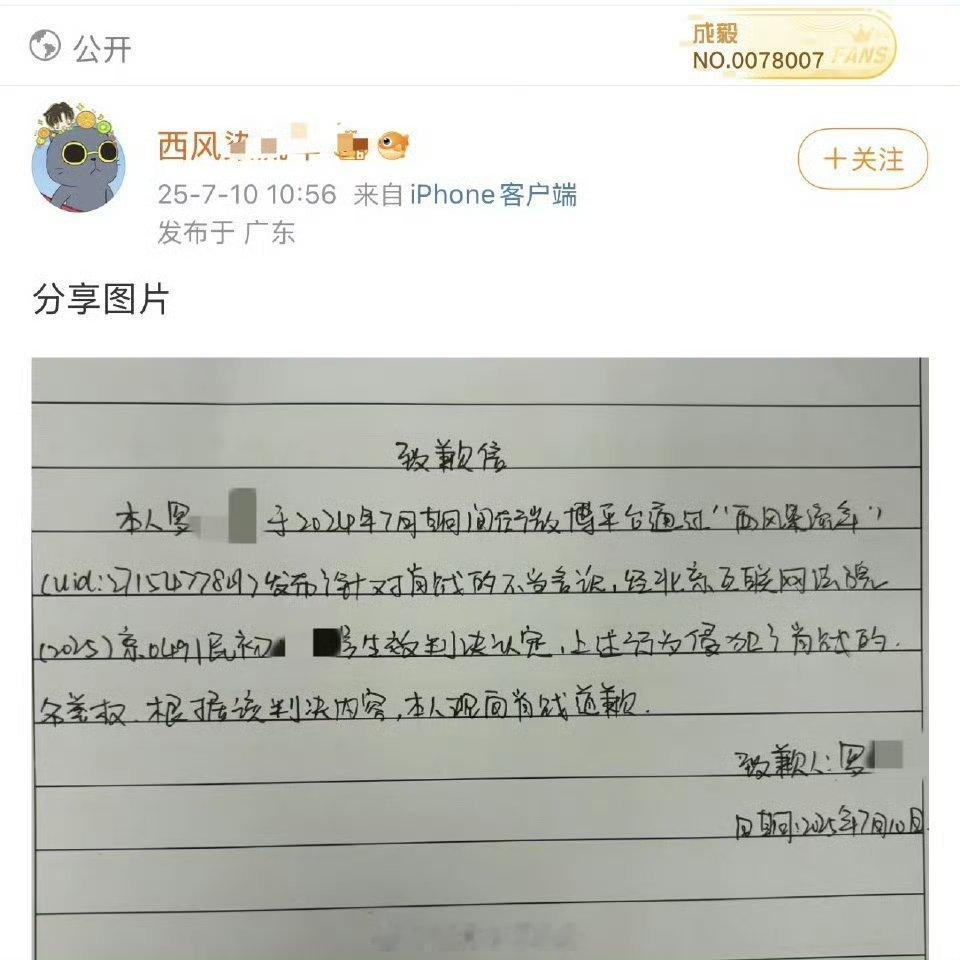 公开
成毅
NO.0078007
FANS
西风
25-7-10 10:56 来自 iPhone客户端
发布于 广东
+关注
分享图片
致歉信
本人罗 于2024年7月期间在微博平台通过“西风梁流年”
(uid:2715477849)发布了针对肖战的不当言论,经北京互联网法院
(2025)京0491民初 号生效判决认定,上述行为侵犯了肖战的
名誉权.根据该判决内容,本人现向肖战道歉.
致歉人:罗
日期:2025年7月10日.